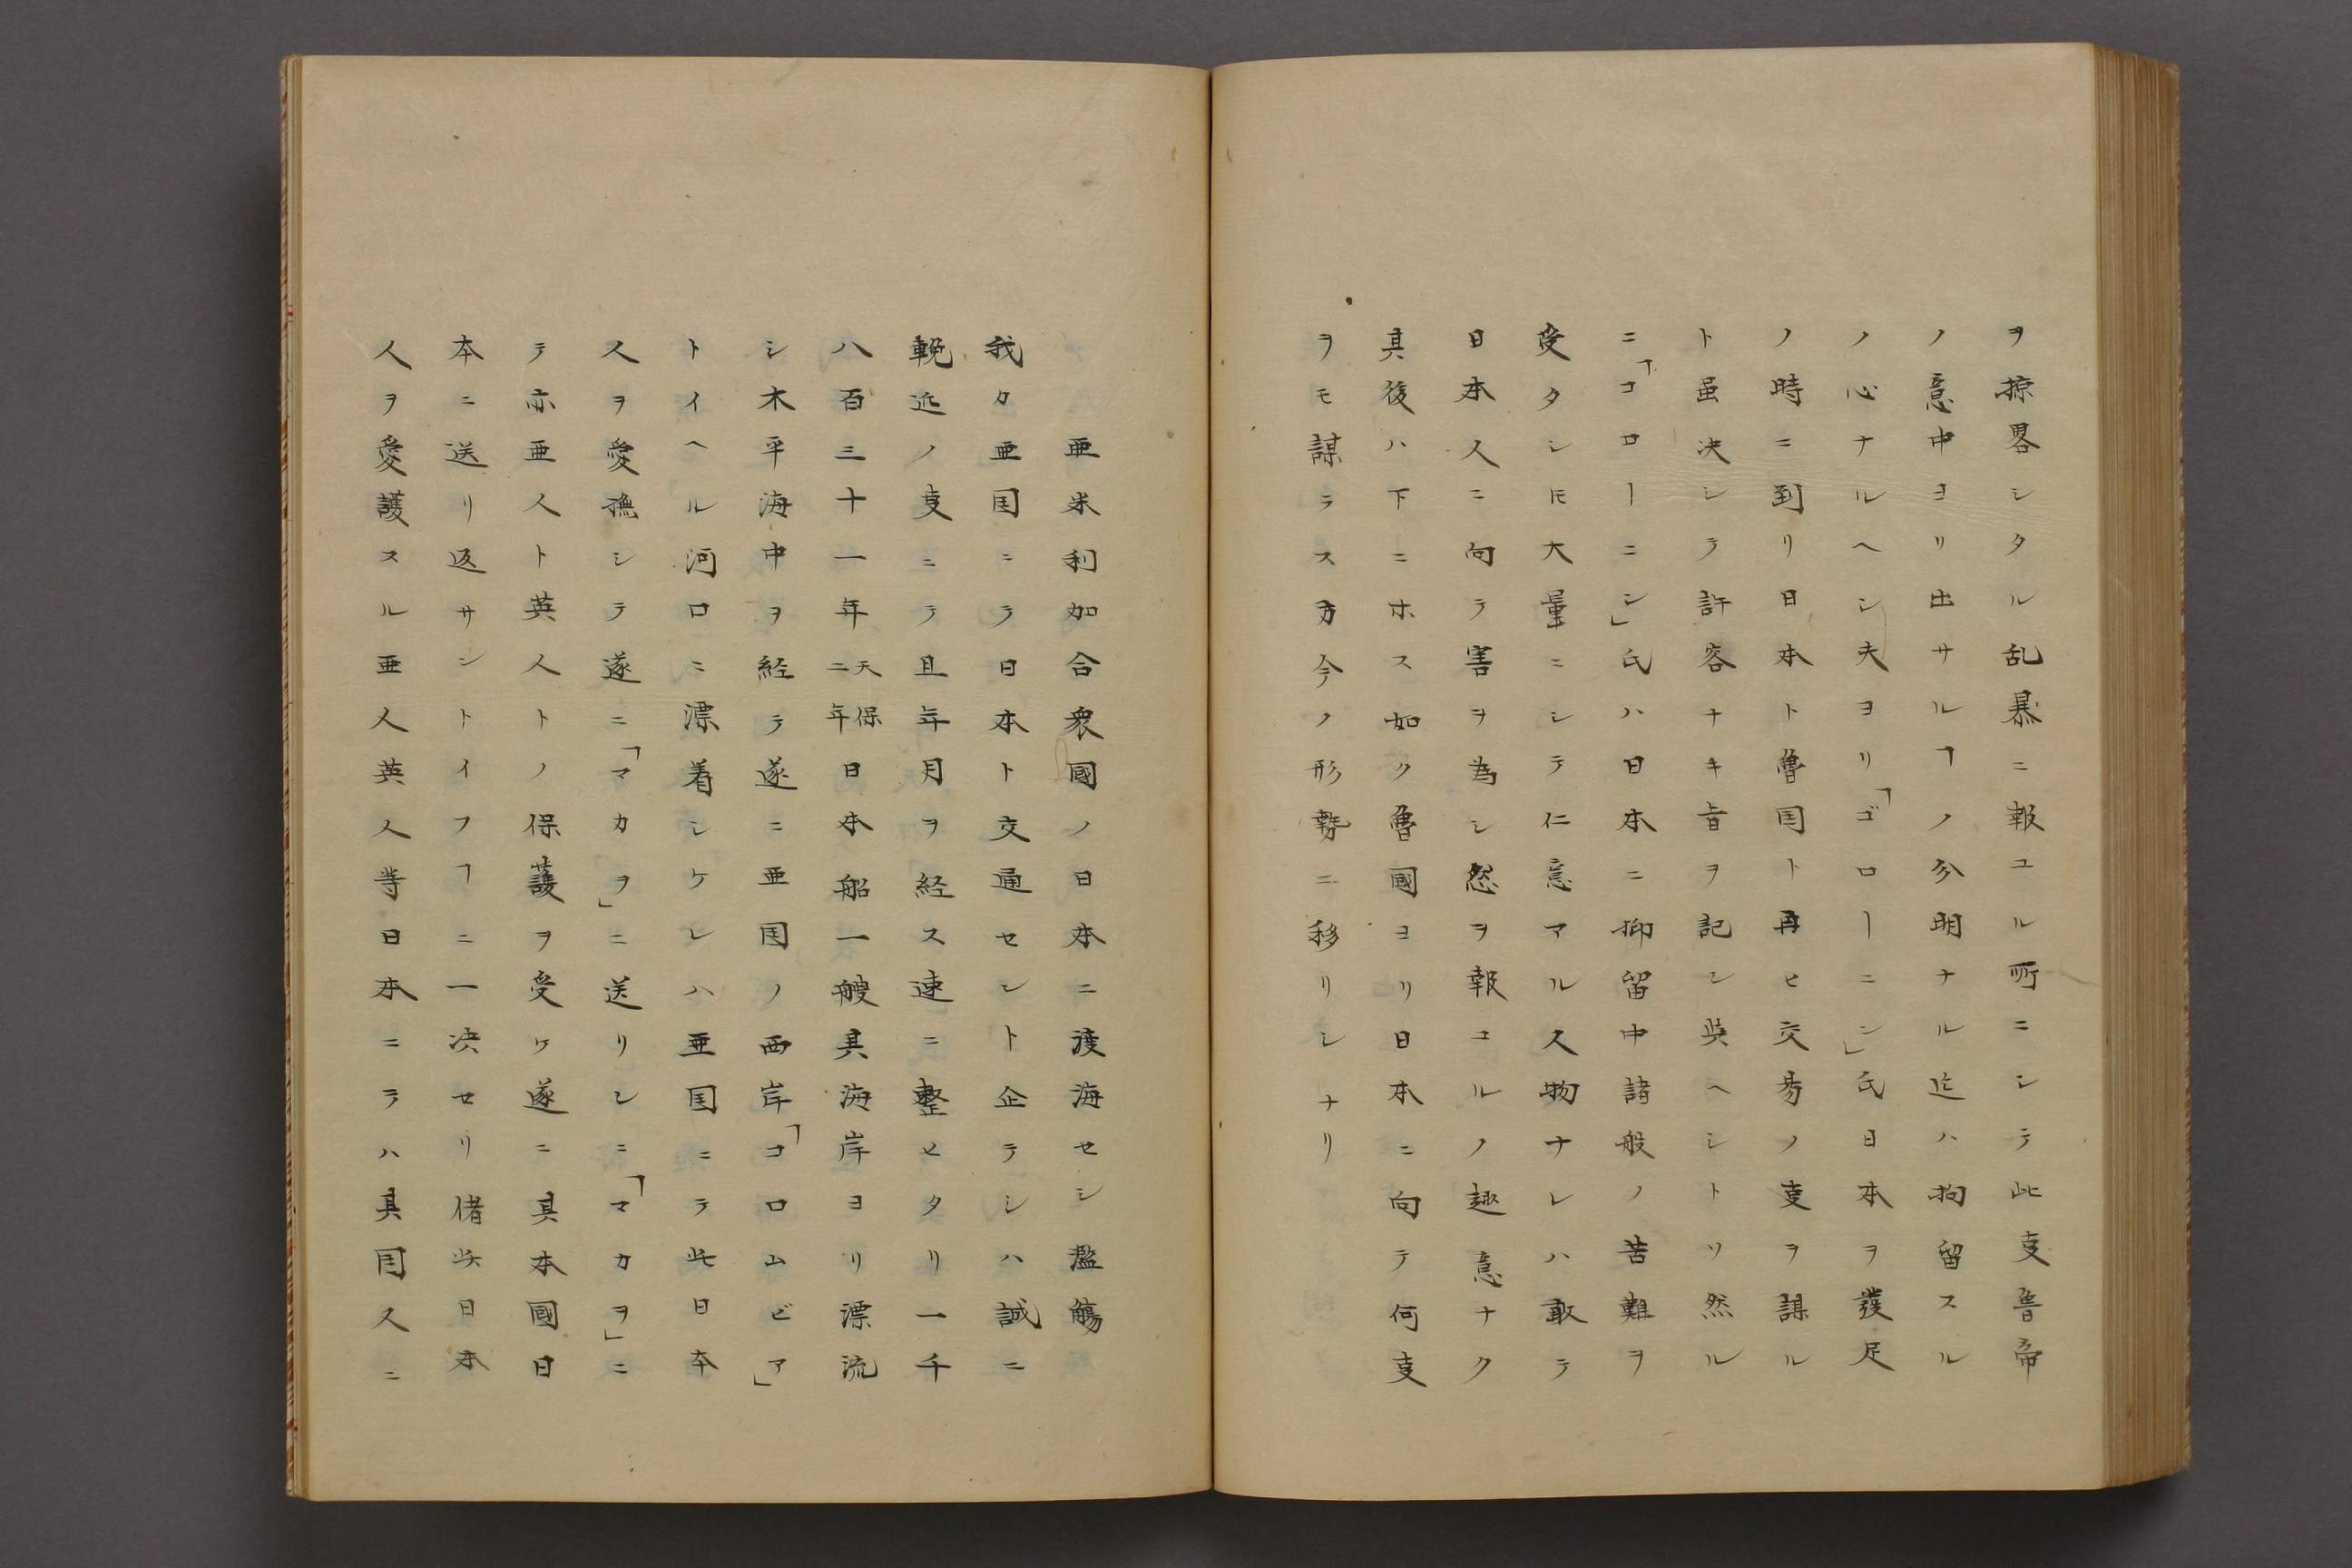 ヲ掠畧シタル乱暴ニ報ユル所ニシテ此叓魯帝
ノ意中ヨリ出サルヿノ分明ナル迄ハ拘留スル
ノ心ナルヘシ夫ヨリ「ゴローニン」氏日本ヲ發足
ノ時ニ到リ日本ト魯国ト再ヒ交易ノ叓ヲ謀ル
ト虽决シテ許容ナキ旨ヲ記シ與ヘシトソ然ル
ニ「コローニン」氏ハ日本ニ抑留中諸般ノ苦難ヲ
受タシ𪜈大量ニシテ仁意マル人物ナレハ敢テ
日本人ニ向テ害ヲ為シ怨ヲ報ユルノ趣意ナク
其後ハ下ニホス如ク魯國ヨリ日本ニ向テ何叓
ヲモ謀ラス方今ノ形勢ニ移リシナリ
亜米利加合衆國ノ日本ニ渡海セシ濫觴
我カ亜国ニテ日本ト交通セント企テシハ誠ニ
輓近ノ叓ニテ且年月ヲ経ス速ニ整ヒタリ一千
八百三十一年天保二年日本船一艘其海岸ヨリ漂流
シ木平海中ヲ経テ遂ニ亜国ノ西岸「コロムビア」
トイヘル河口ニ漂着シケレハ亜国ニテ此日本
人ヲ愛撫シテ遂ニ「マカヲ」ニ送リシニ「マカヲ」ニ
テ亦亜人ト英人トノ保護ヲ受ケ遂ニ其本國日
本ニ送リ返サントイフヿニ一决セリ偖此日本
人ヲ愛護スル亜人英人等日本ニテハ其国人ニ